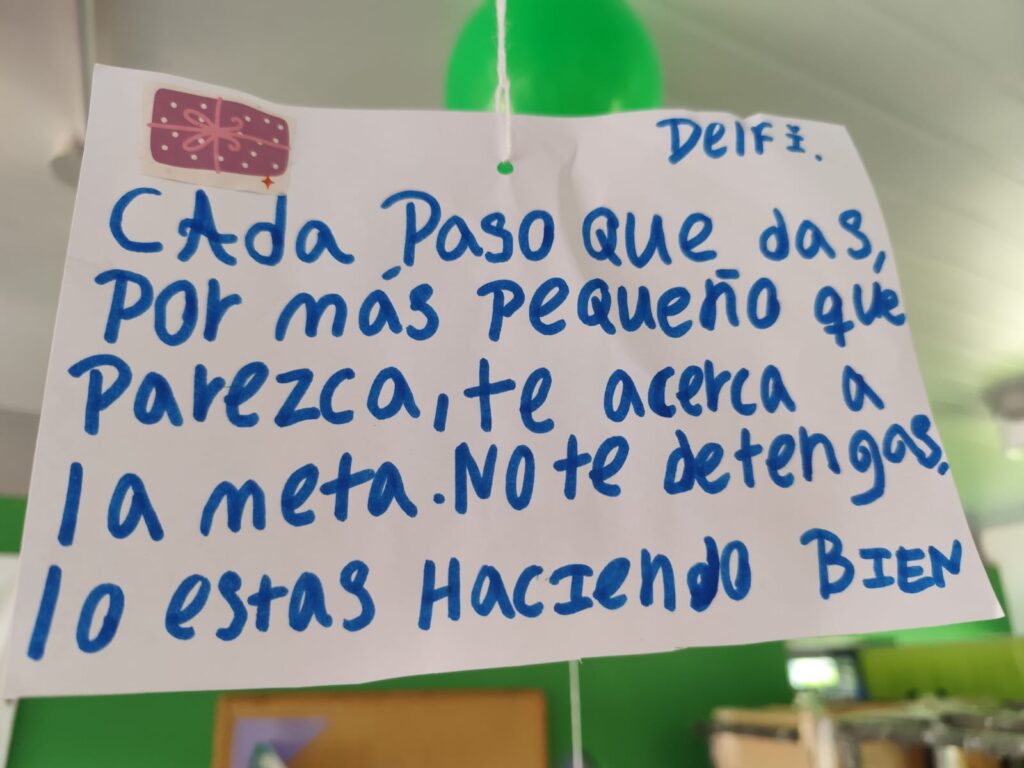 Delfi.
CAda Paso que das,
Por más pequeño que
Parezca, te acerca a
la meta. No te detengas.
lo estas Haciendo BIEN